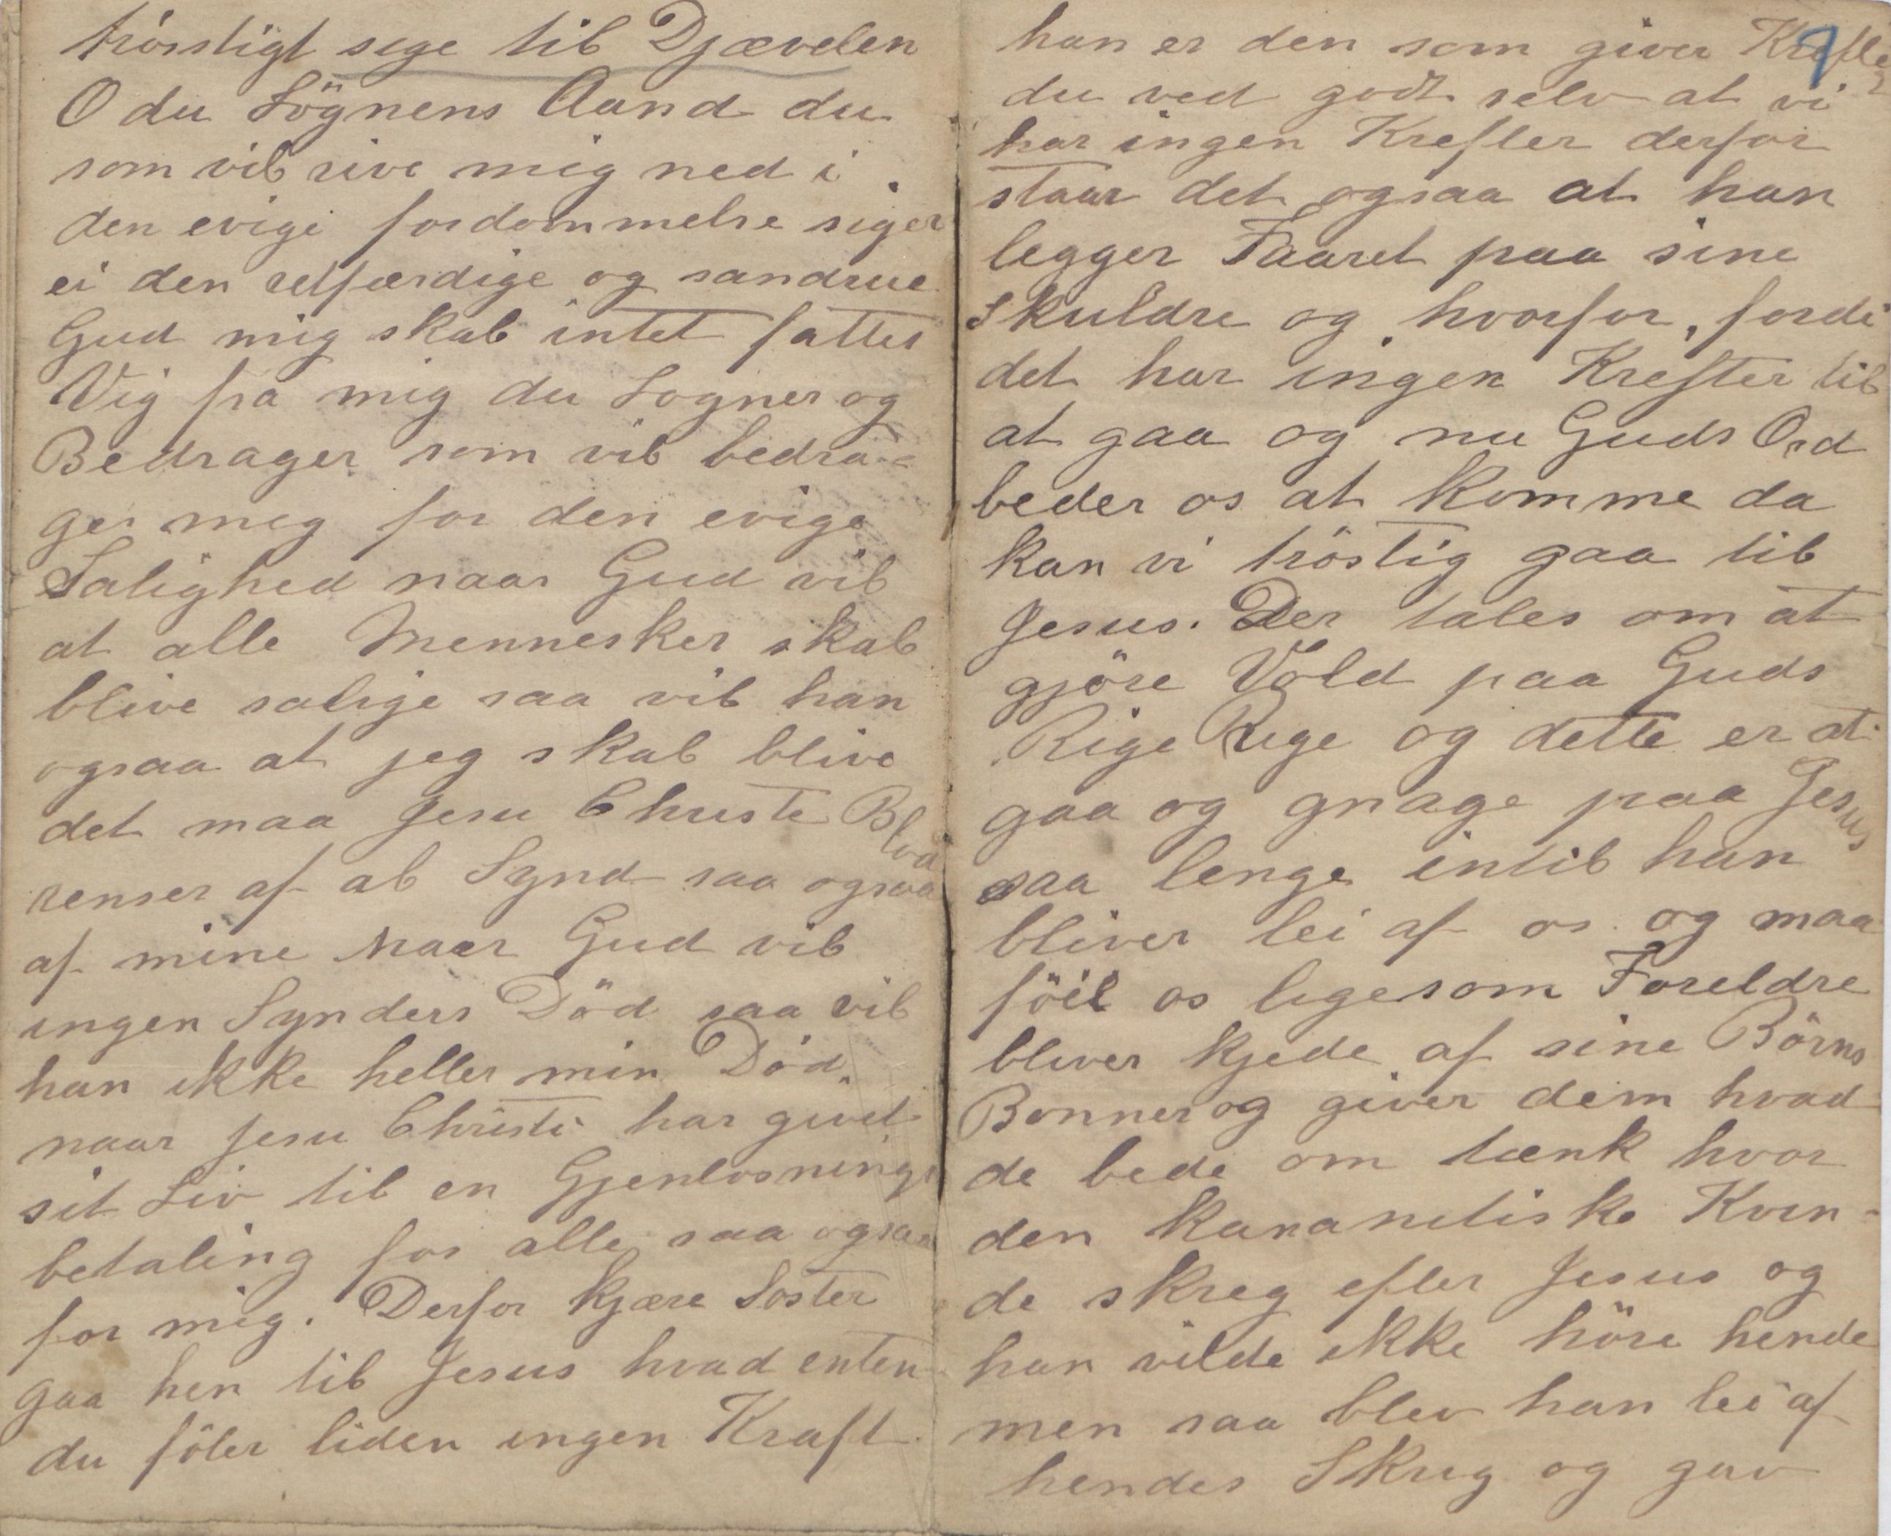 trösstigt sige til Djævelen
O du Lögnens Aand du
som vil rive mig ned i
den evige fordommelse siger
ei den retfærdige og sandrue
Gud mig skal intet fattes
Vig fra mig du Logner og
Bedrager som vil bedra-
ger meg for den evige
Salighed naar Gud vil
at alle Mennesker skal
blive salige saa vil han
ogsaa at jeg skal blive
det maa Jesu Christi Blod
renser af al Synd saa ogsaa
af mine Naar Gud vil
ingen Synders Död saa vil
han ikke heller min Död.
naar Jesu Christi har givet
sit Liv til en Gjenlosnings
betaling for alle saa ogsaa
for mig. Derfor kjære Söster
gaa hen til Jesus hvad enten
du föler liden ingen Kraft
7
han er den som giver Krefter
du ved godt selv at vi
har ingen Krefter derfor
staar det ogsaa at han
legger Faaret paa sine
Skuldre og hvorfor, fordi
det har ingen Krefter til
at gaa og nu Guds Ord
beder os at komme da
kan vi tröstig gaa til
Jesus. Der tales om at
gjöre Vold paa Guds
Rige Rige og dette er at
gaa og gnage paa Jesus
saa lenge intil han
bliver lei af os og maa
föie os ligesom Foreldre
bliver kjede af sine Börns
Bonner og giver dem hvad
de bede om tænk hvor
den kananitiske Kvin-
de skreg efter Jesus og
han vilde ikke höre hende
men saa blev han lei af
hendes Skrig og gav